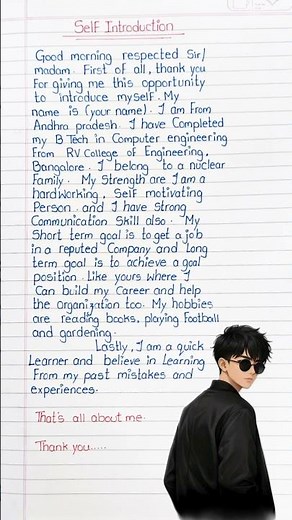 Self Introduction
Good morning respected Sir/
madam. First of all, thank you
For giving me this opportunity
to introduce myself. My
name is (your name). I am From
Andhra pradesh. I have Completed
my B Tech in Computer engineering
From RV College of Engineering,
Bangalore. I belong to a nuclear
Family. My Strength are I am a
hardWorking, Self motivating
Person. and I have Strong
Communication Skill also. My
Short term goal is to get a job
in a reputed Company and long
term goal is to achieve a goal
position. Like yours Where I
Can build my Career and help
the organization too. My hobbies
are reading books, playing Football
and gardening.
Lastly, I am a quick
Learner and believe in Learning
From my past mistakes and
experiences.
That's all about me.
Thank you.....